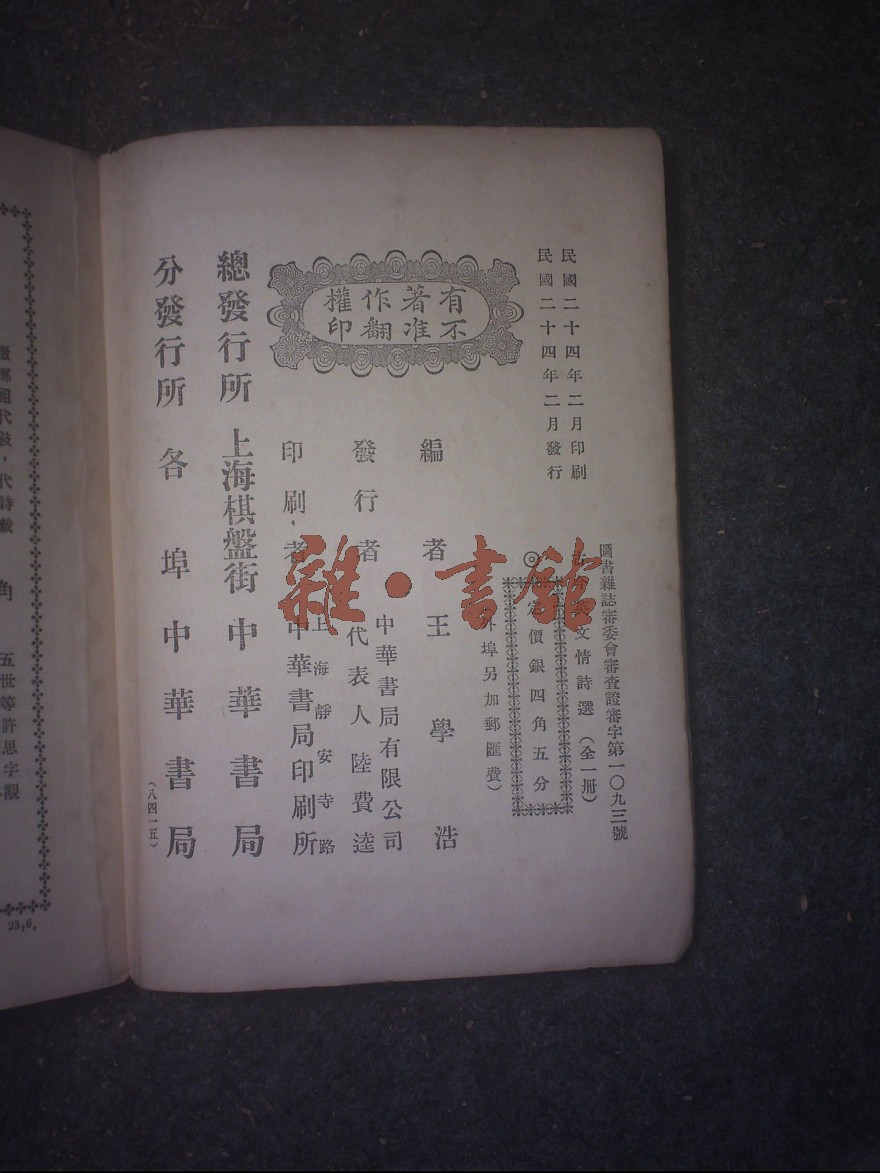 民國二十四年二月印刷
民國二十四年二月發行
圖書雜誌審委會審查證審字第一〇九三號
文情詩選（全一册）
◎定價銀四角五分
外埠另加郵匯費）
有著作權
不准翻印
編者 王學浩
發行者 中華書局有限公司
代表人 陸費逵
印刷者 上海靜安寺路
中華書局印刷所
總發行所 上海棋盤街 中華書局
分發行所 各埠 中華書局
（八四一五）
雜·書館
代詩
角
五世等許思字
23,6.